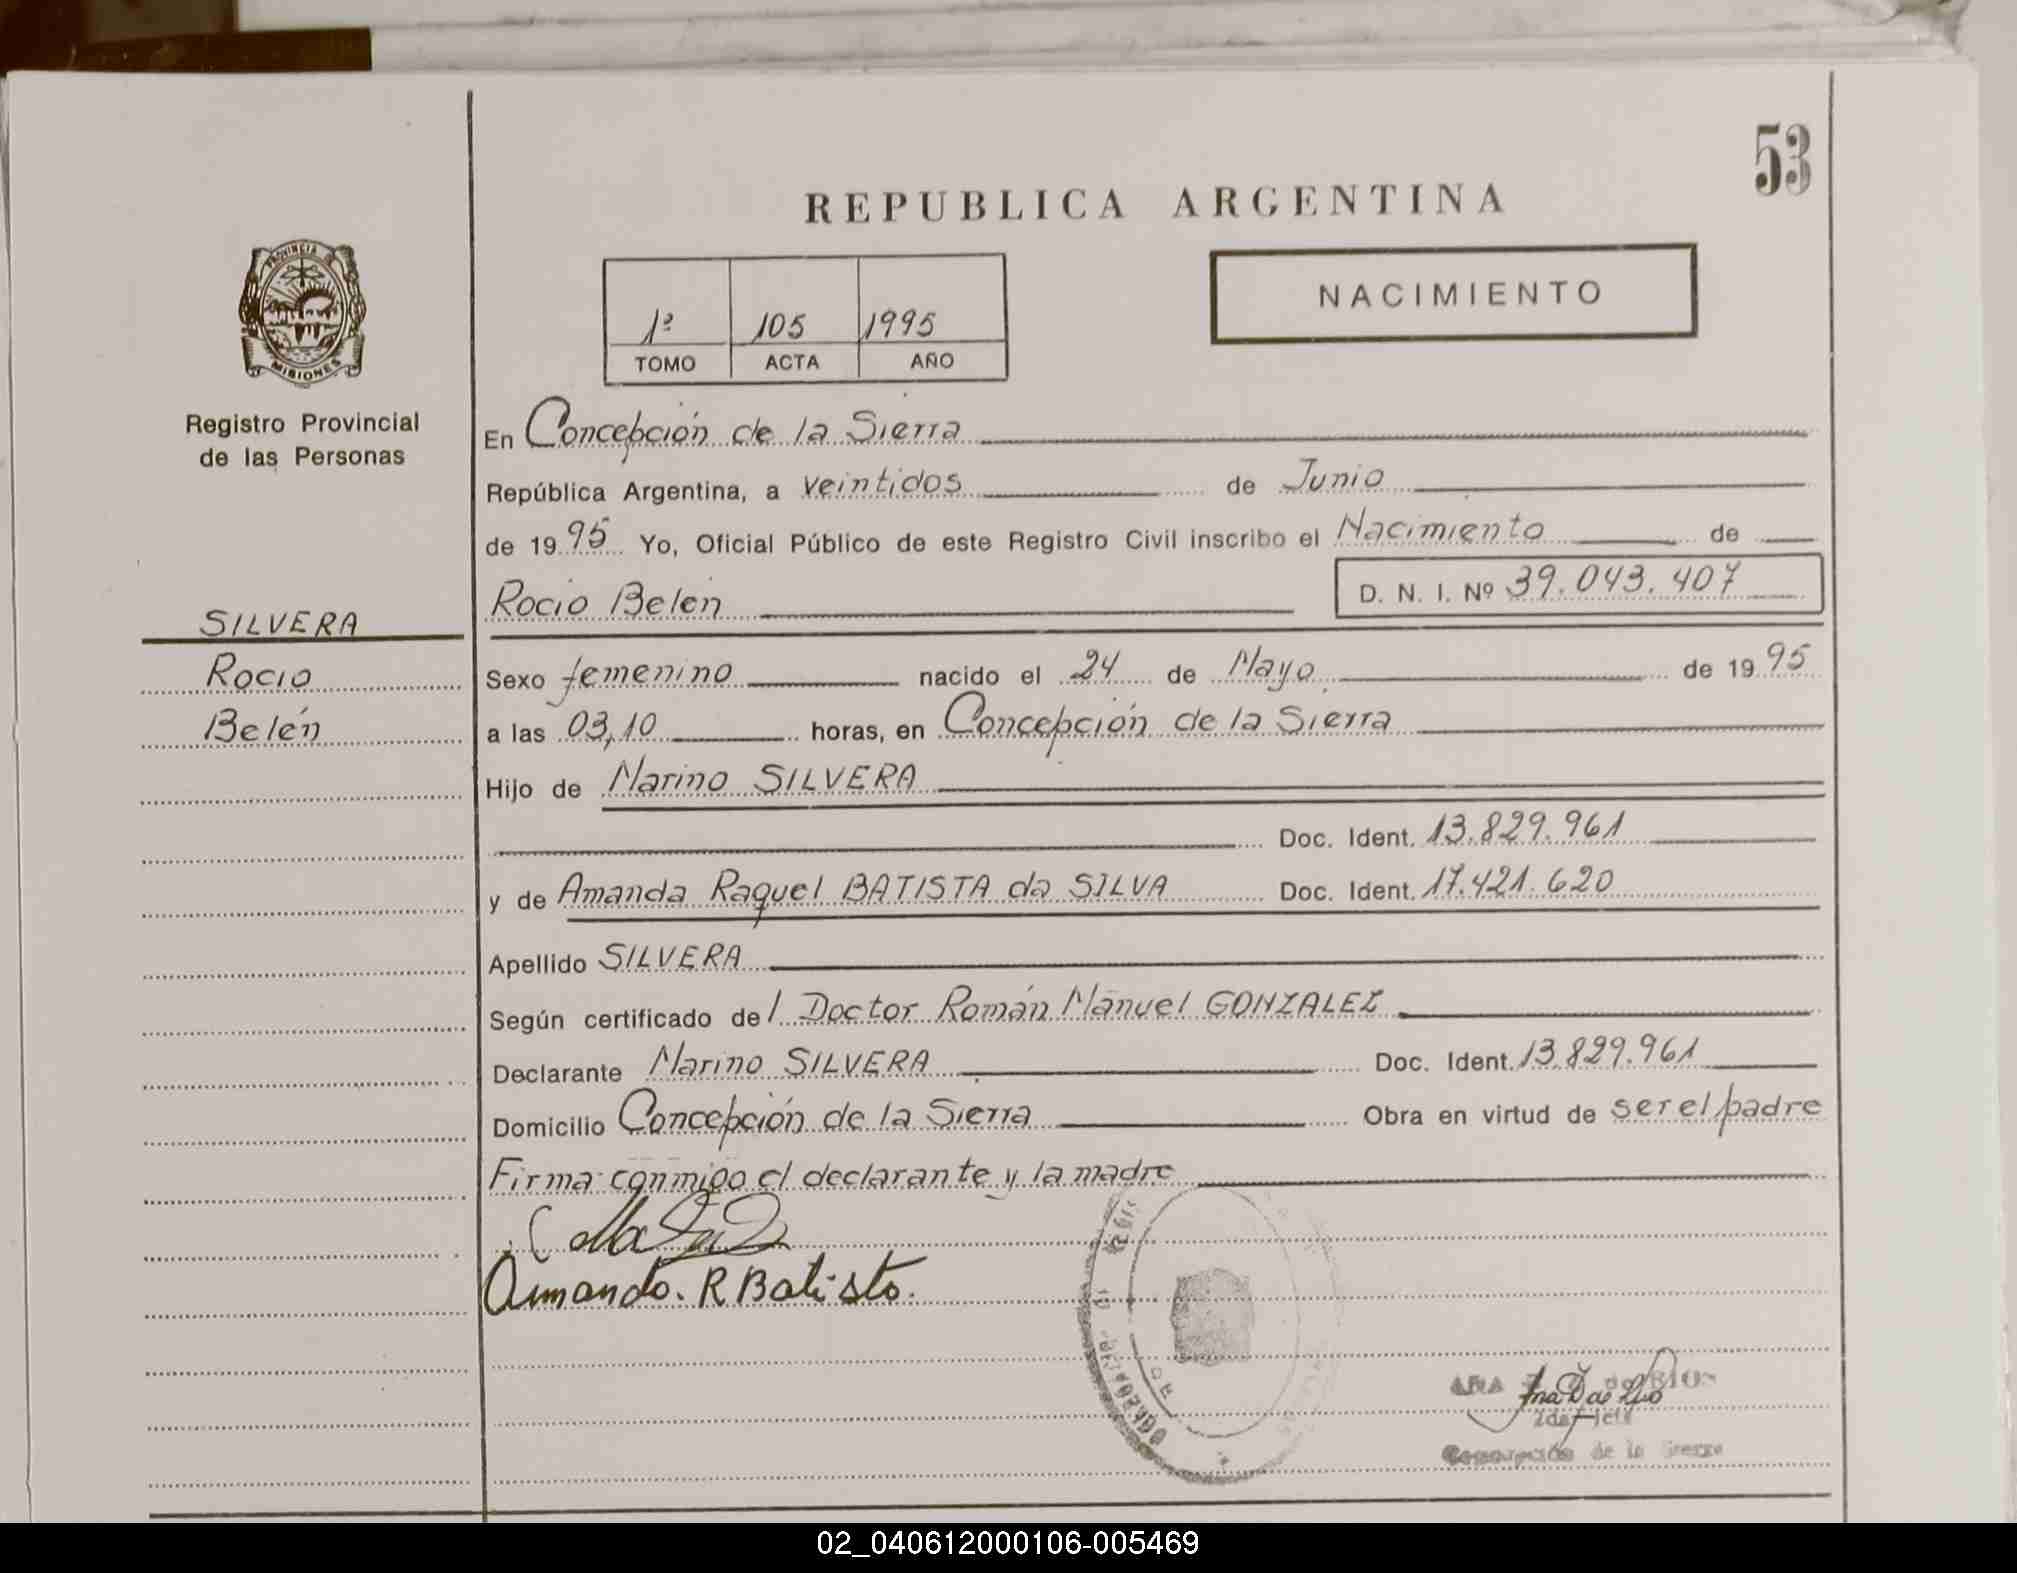 53
REPUBLICA ARGENTINA
PROVINCIA DE
MISIONES
Registro Provincial
de las Personas
NACIMIENTO
1º 105 1995
TOMO ACTA AÑO
En Concepción de la Sierra
República Argentina, a veintidos de Junio
de 1995 Yo, Oficial Público de este Registro Civil inscribo el Nacimiento de
Rocio Belén D. N. I. Nº 39.043.407
SILVERA
Rocio
Belén
Sexo femenino nacido el 24 de Mayo de 1995
a las 03,10 horas, en Concepción de la Sierra
Hijo de Marino SILVERA
Doc. Ident. 13.829.961
y de Amanda Raquel BATISTA da SILVA Doc. Ident. 17.421.620
Apellido SILVERA
Según certificado del Doctor Román Manuel GONZALEZ
Declarante Marino SILVERA Doc. Ident. 13.829.961
Domicilio Concepción de la Sierra Obra en virtud de ser el padre
Firma conmigo el declarante y la madre
Amanda. R Batista.
ANA
de la Sierra
02_040612000106-005469